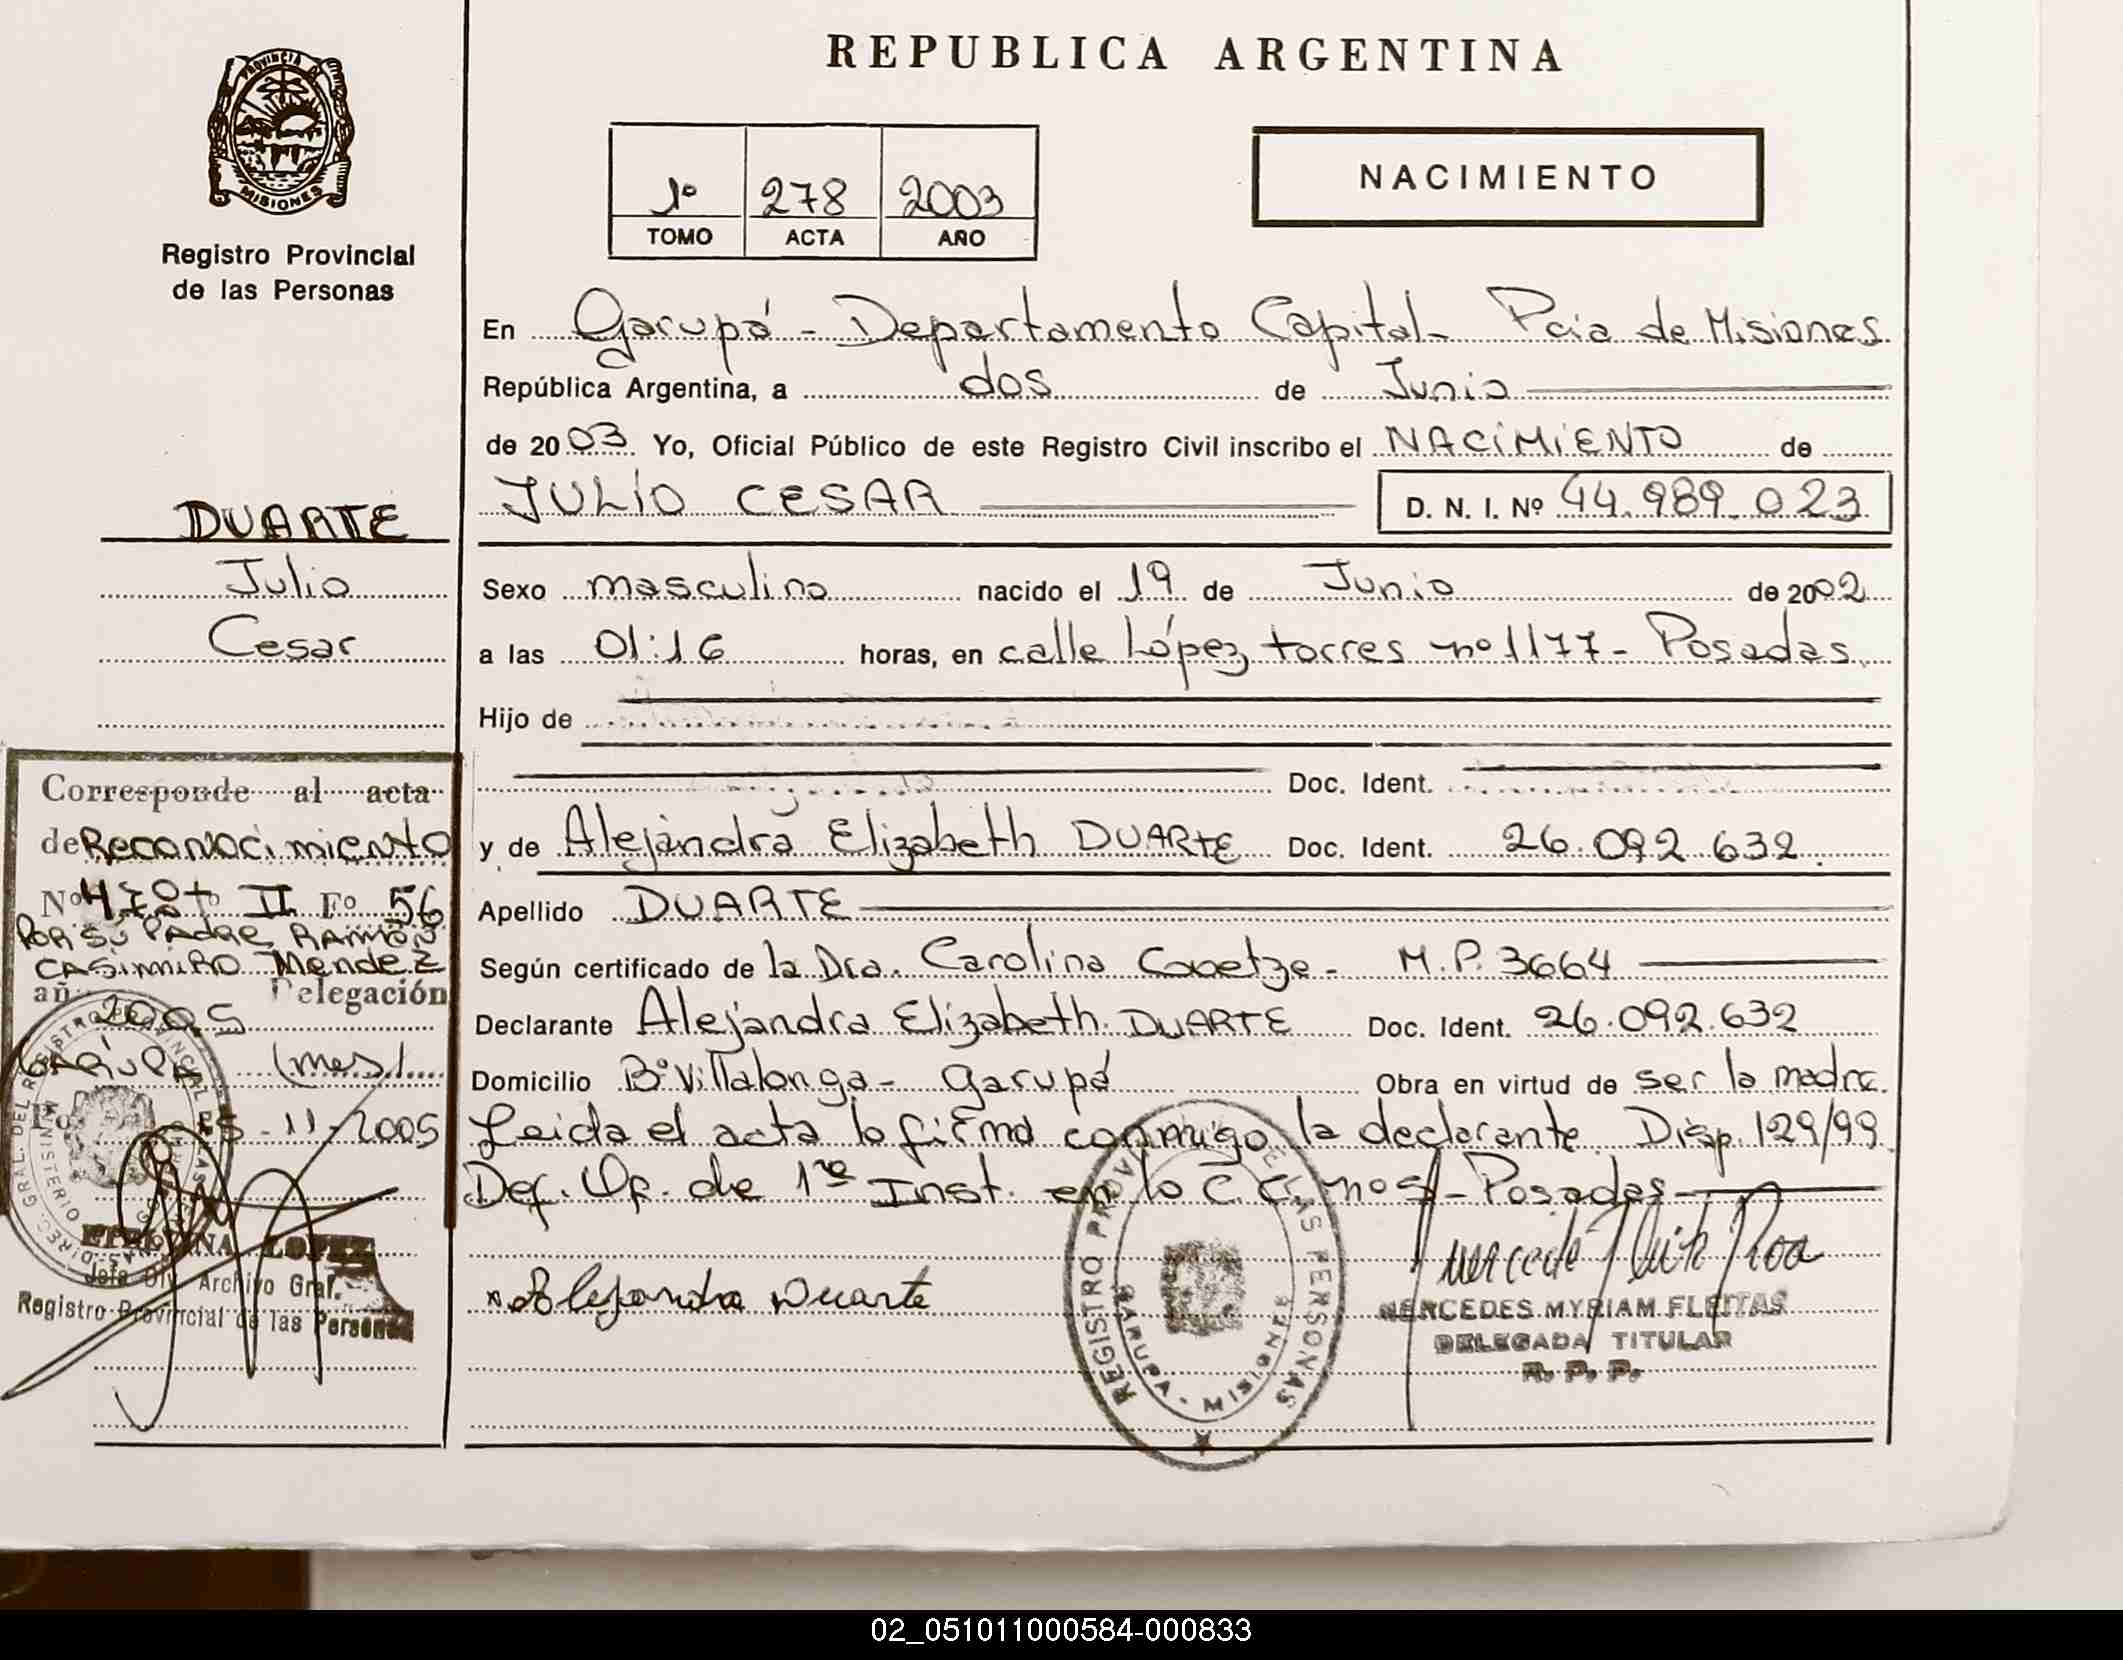 REPUBLICA ARGENTINA
PROVINCIA DE
MISIONES
Registro Provincial
de las Personas
1º 278 2003
TOMO ACTA AÑO
NACIMIENTO
En Garupá - Departamento Capital - Pcia de Misiones.
República Argentina, a dos de Junio
de 2003. Yo, Oficial Público de este Registro Civil inscribo el NACIMIENTO de
JULIO CESAR D. N. I. Nº 44.989.023
DUARTE
Julio
Cesar
Sexo masculino nacido el 19 de Junio de 2002
a las 01:16 horas, en calle López torres nº 1177 - Posadas
Hijo de
Doc. Ident.
y de Alejandra Elizabeth DUARTE Doc. Ident. 26.092.632.
Apellido DUARTE
Según certificado de la Dra. Carolina - M.P. 3664
Declarante Alejandra Elizabeth DUARTE Doc. Ident. 26.092.632
Domicilio Bº Villalonga - Garupá Obra en virtud de ser la madre.
Leida el acta la firma conmigo la declarante Disp. 129/99
Def. Of. de 1ra Inst. en lo C. C. nº - Posadas
Corresponde al acta
de Reconocimiento
Nº Tº II Fº 56
POR SU PADRE RAMÓN
CASIMIRO Mendez
año 2005 Delegación
GARUPA (mes)
Po 15-11-2005
LOPEZ
Jefa Div. Archivo Gral.
Registro Provincial de las Personas
Alejandra Duarte
REGISTRO PROV. DE LAS PERSONAS
GARUPA - MISIONES
MERCEDES MYRIAM FLEITAS
DELEGADA TITULAR
R. P. P.
02_051011000584-000833